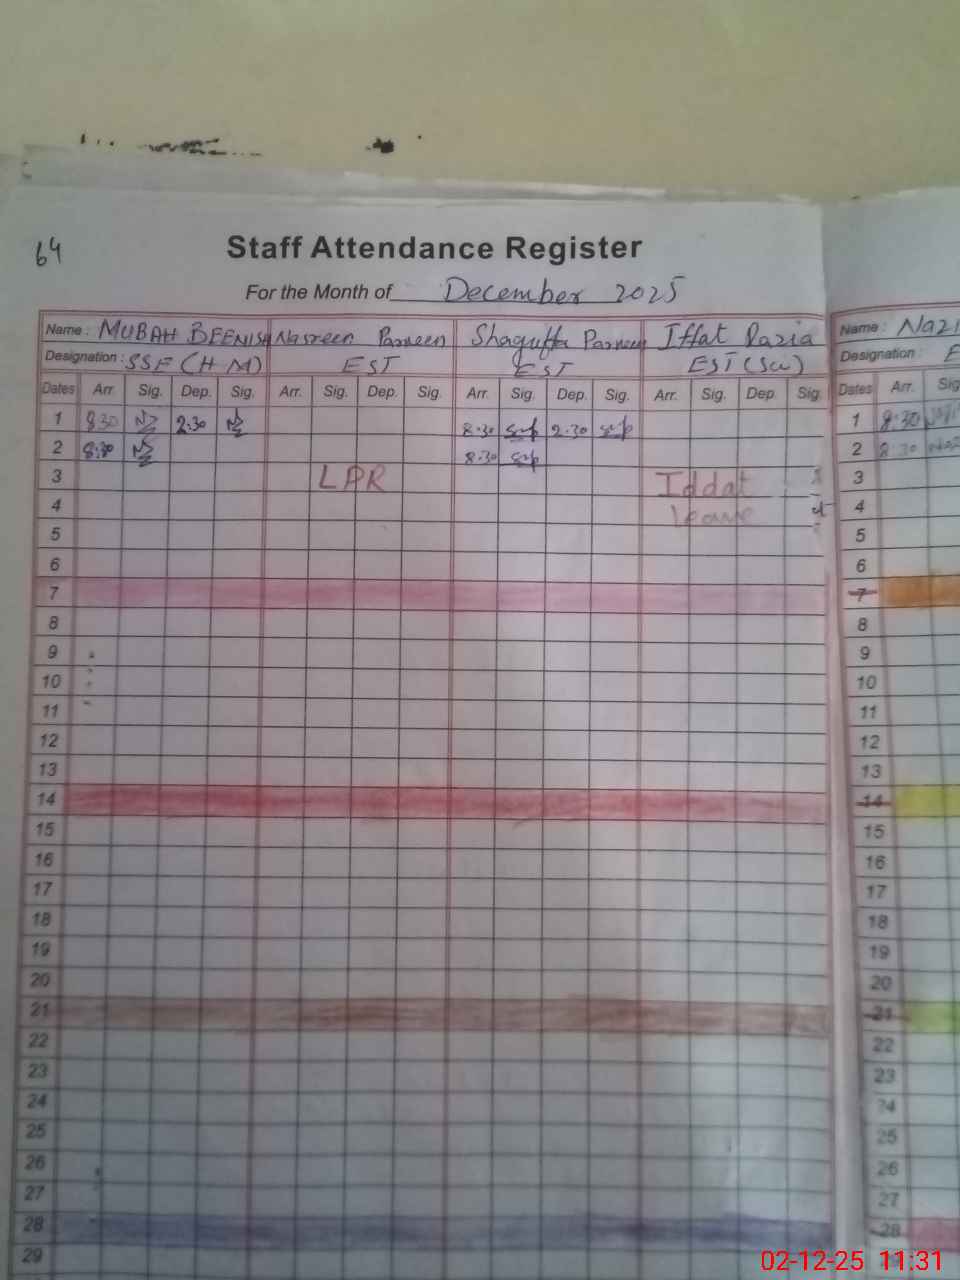 64
Staff Attendance Register
For the Month of December 2025
Name : MUBAH BEENISH Nasreen Parveen Shagufta Parveen Iffat Razia Name : Nazi
Designation : SSE (H M) EST EST EST (SW) Designation : E
Dates Arr. Sig. Dep. Sig. Arr. Sig. Dep. Sig. Arr. Sig. Dep. Sig. Arr. Sig. Dep. Sig. Dates Arr. Sig
1 8:30 2:30 8:30 2:30 1 8:30
2 8:30 8:30 2 8:30
3 LPR Iddat 3
4 leave 4
5 5
6 6
7 7
8 8
9 9
10 10
11 11
12 12
13 13
14 14
15 15
16 16
17 17
18 18
19 19
20 20
21 21
22 22
23 23
24 24
25 25
26 26
27 27
28 28
29
02-12-25 11:31